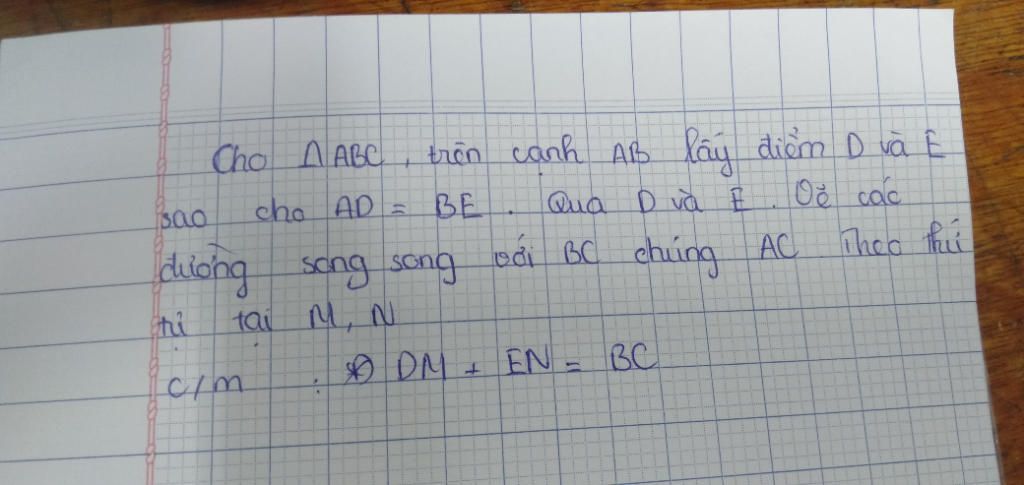 Cho ΔABC, trên cạnh AB lấy điểm D và E
sao cho AD = BE. Qua D và E. Vẽ các
đường song song với BC chúng AC Theo thứ
tự tại M, N
c/m : DM + EN = BC